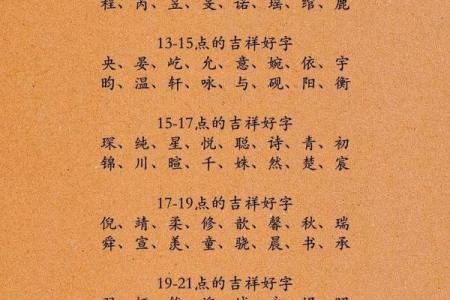 程、芮、昱、旻、诺、瑶、绾、鹿
13-15点的吉祥好字
央、晏、屹、允、意、婉、依、宇
昀、温、轩、咏、与、砚、阳、衡
15-17点的吉祥好字
琛、纯、星、悦、聪、诗、青、初
锦、川、暄、千、姝、然、楚、宸
17-19点的吉祥好字
倪、靖、柔、修、歆、馨、秋、瑞
舜、宣、羡、童、骁、晨、书、承
19-21点的吉祥好字